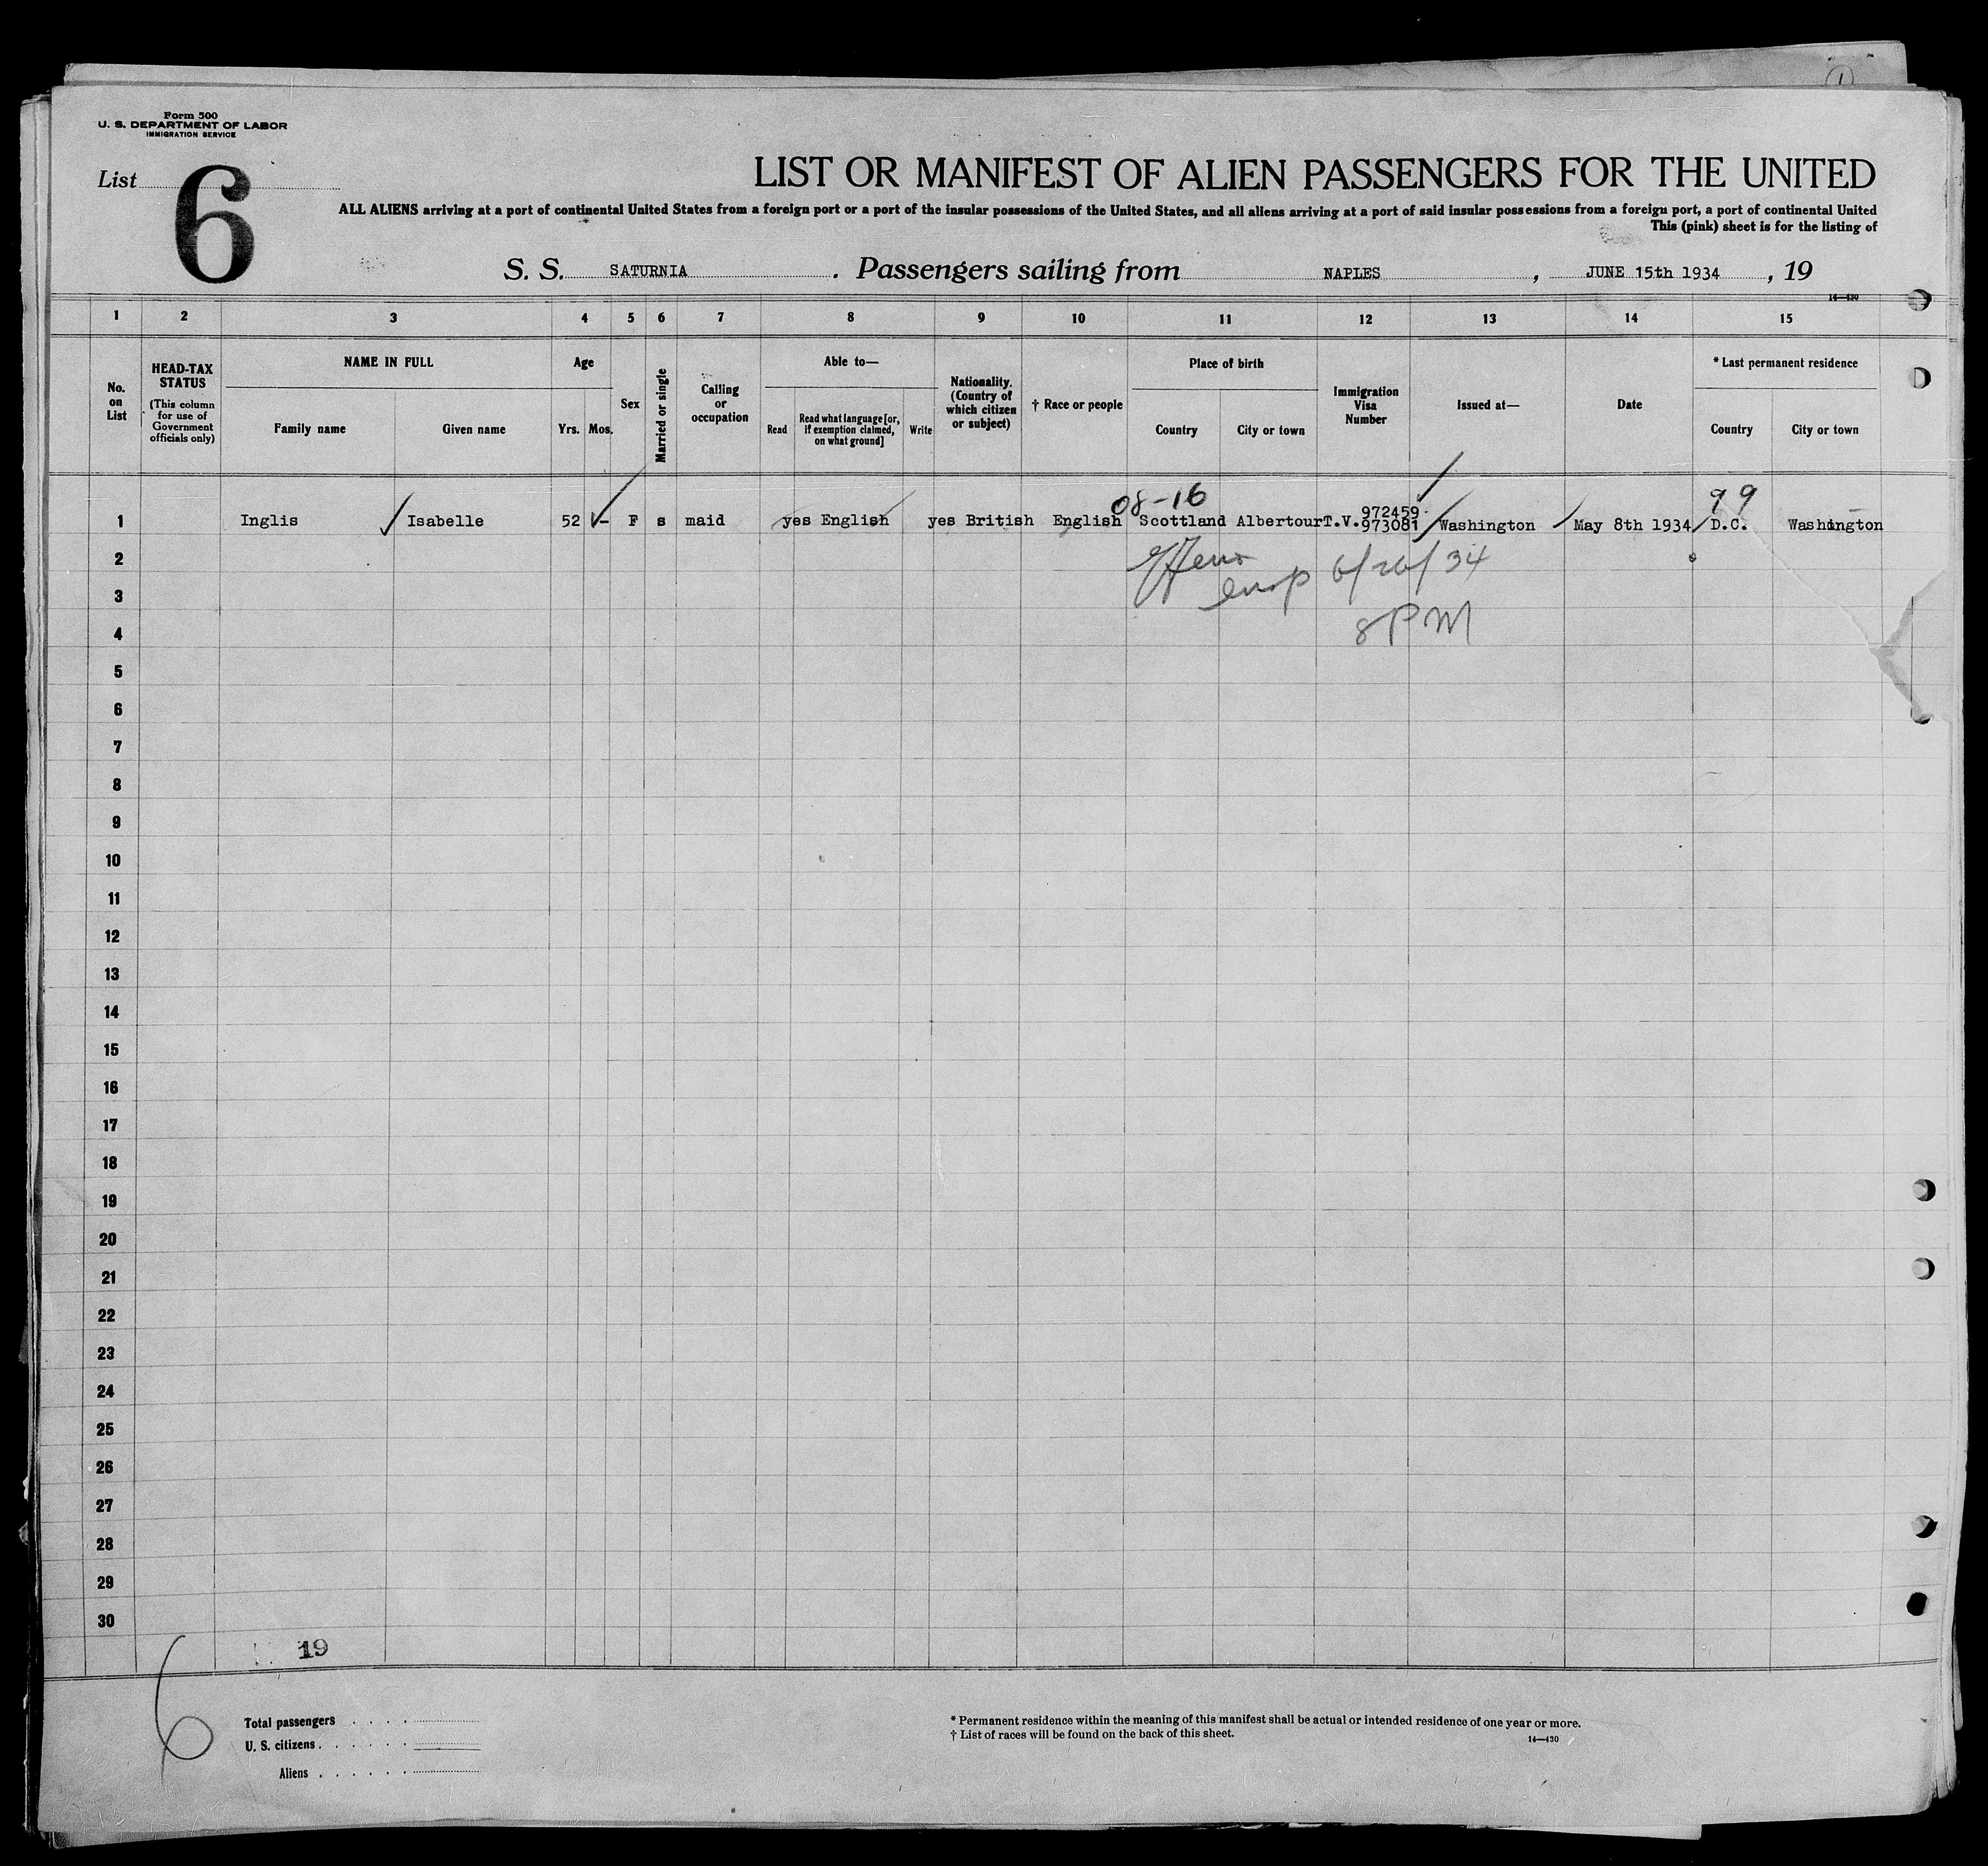 1
Form 500
U. S. DEPARTMENT OF LABOR
IMMIGRATION SERVICE
List 6
LIST OR MANIFEST OF ALIEN PASSENGERS FOR THE UNITED
ALL ALIENS arriving at a port of continental United States from a foreign port or a port of the insular possessions of the United States, and all aliens arriving at a port of said insular possessions from a foreign port, a port of continental United
This (pink) sheet is for the listing of
S. S. SATURNIA. Passengers sailing from NAPLES, JUNE 15th 1934, 19
14—430
1 2 3 4 5 6 7 8 9 10 11 12 13 14 15
No. on List
HEAD-TAX STATUS
(This column for use of Government officials only)
NAME IN FULL
Family name Given name
Age
Yrs. Mos.
Sex
Married or single
Calling or occupation
Able to—
Read Read what language [or, if exemption claimed, on what ground] Write
Nationality. (Country of which citizen or subject)
† Race or people
Place of birth
Country City or town
Immigration Visa Number
Issued at—
Date
* Last permanent residence
Country City or town
08-16 99
972459
1 Inglis Isabelle 52 - F s maid yes English yes British English Scottland Albertour T.V. 973081 Washington May 8th 1934 D.C. Washington
2
6/26/34
3
4
8 PM
5
6
7
8
9
10
11
12
13
14
15
16
17
18
19
20
21
22
23
24
25
26
27
28
29
30
19
6
Total passengers . . . .
U. S. citizens . . . . . .
Aliens . . . . . .
* Permanent residence within the meaning of this manifest shall be actual or intended residence of one year or more.
† List of races will be found on the back of this sheet.
14—430